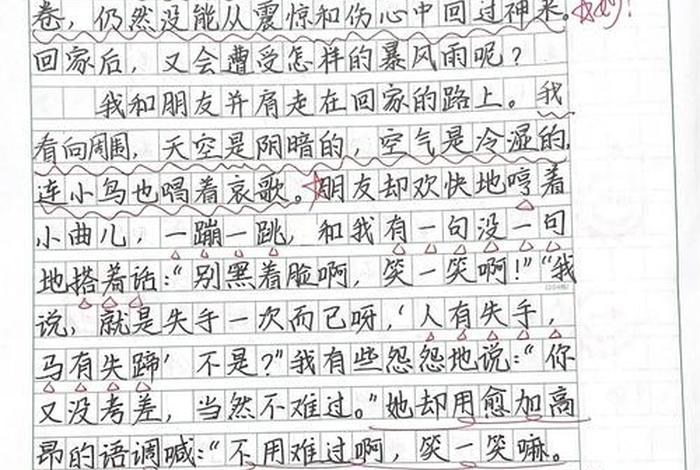 卷，仍然没能从震惊和伤心中回过神来。
回家后，又会遭受怎样的暴风雨呢？
我和朋友并肩走在回家的路上。我
看向周围，天空是阴暗的，空气是冷湿的，
连小鸟也唱着哀歌。朋友却欢快地哼着
小曲儿，一蹦一跳，和我有一句没一句
地搭着话：“别黑着脸啊，笑一笑啊！”“我
说，就是失手一次而已呀，‘人有失手，
马有失蹄’不是？”我有些怨怨地说：“你
又没考差，当然不难过。”她却用愈加高
昂的语调喊：“不用难过啊，笑一笑嘛。